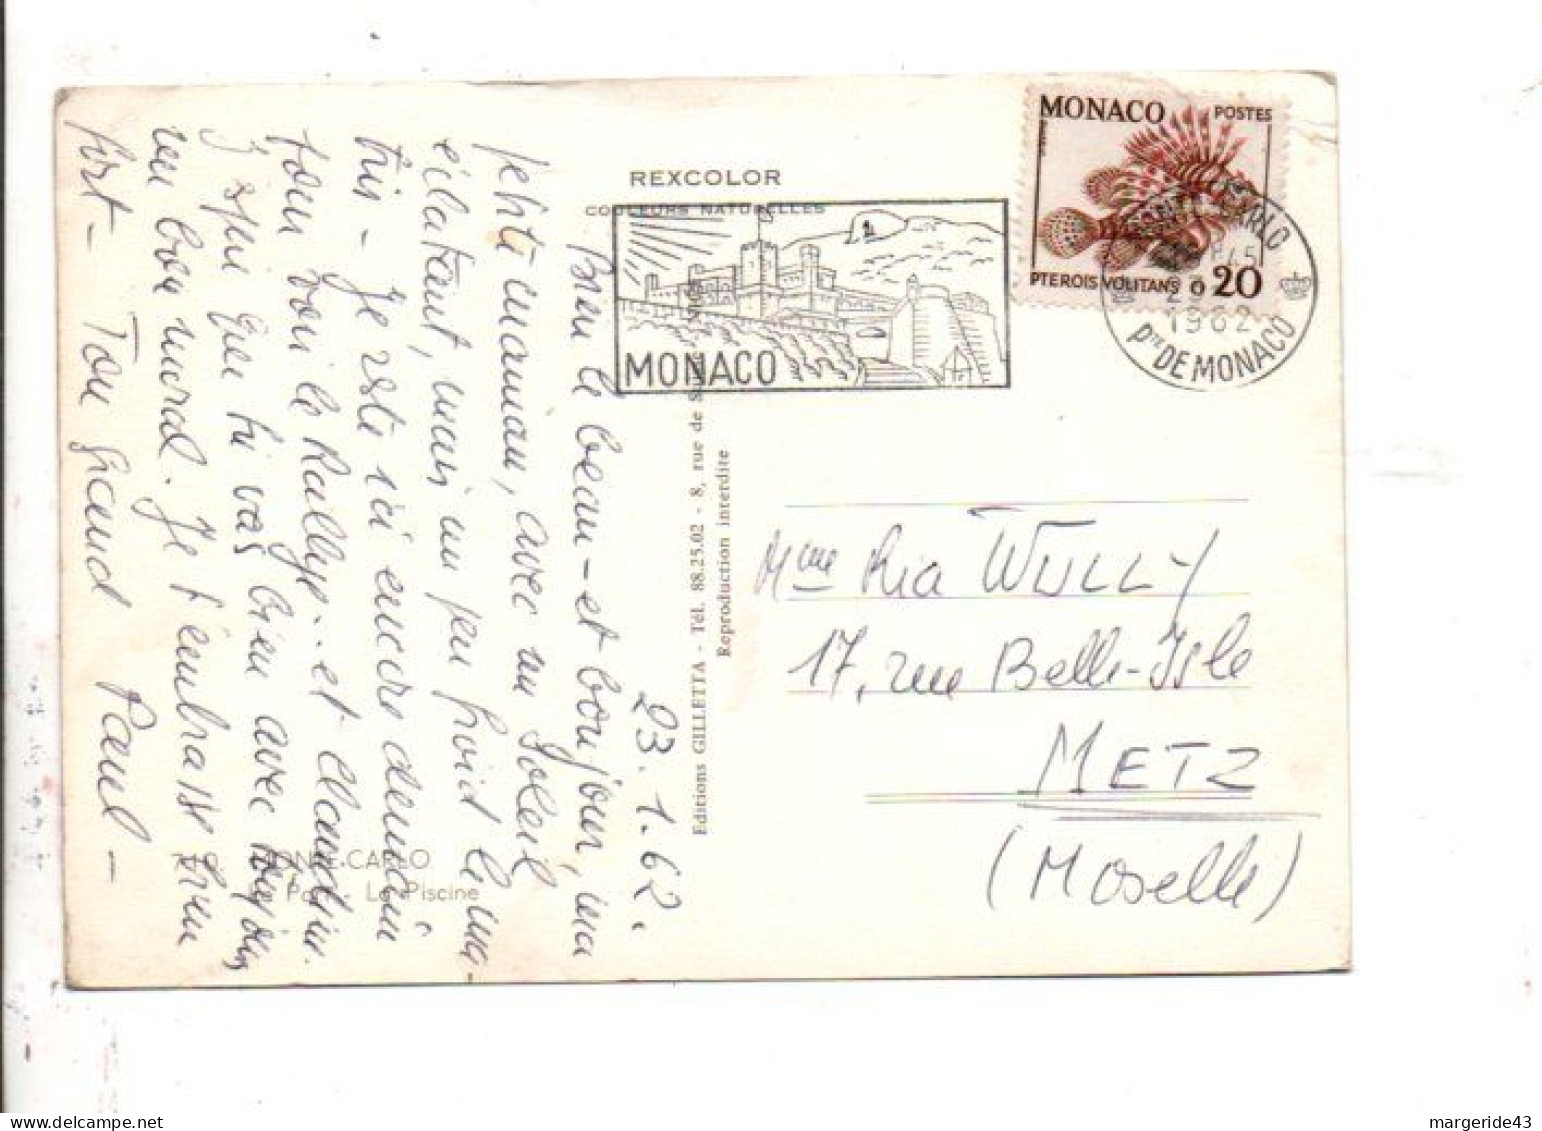 REXCOLOR
COULEURS NATURELLES
MONACO
MONACO
POSTES
PTEROIS VOLITANS
0 20
CARLO
1962
Pte DE MONACO
23.1.62.
Bien le beau-et bonjour, ma
petite maman, avec un soleil
éclatant, mais un peu froid le ma-
tin - Je reste ici encore demain
pour voir le Rallye.. et
J'espère que tu vas bien avec
un bon moral. Je t'embrasse bien
fort - Ton grand Paul -
Editions GILLETTA - Tél. 88.25.02 - 8, rue de
Reproduction interdite
Mme Ria WULLY
17, rue Belle-Isle
METZ
(Moselle)
MONTE-CARLO
Le Port - La Piscine
margeride43